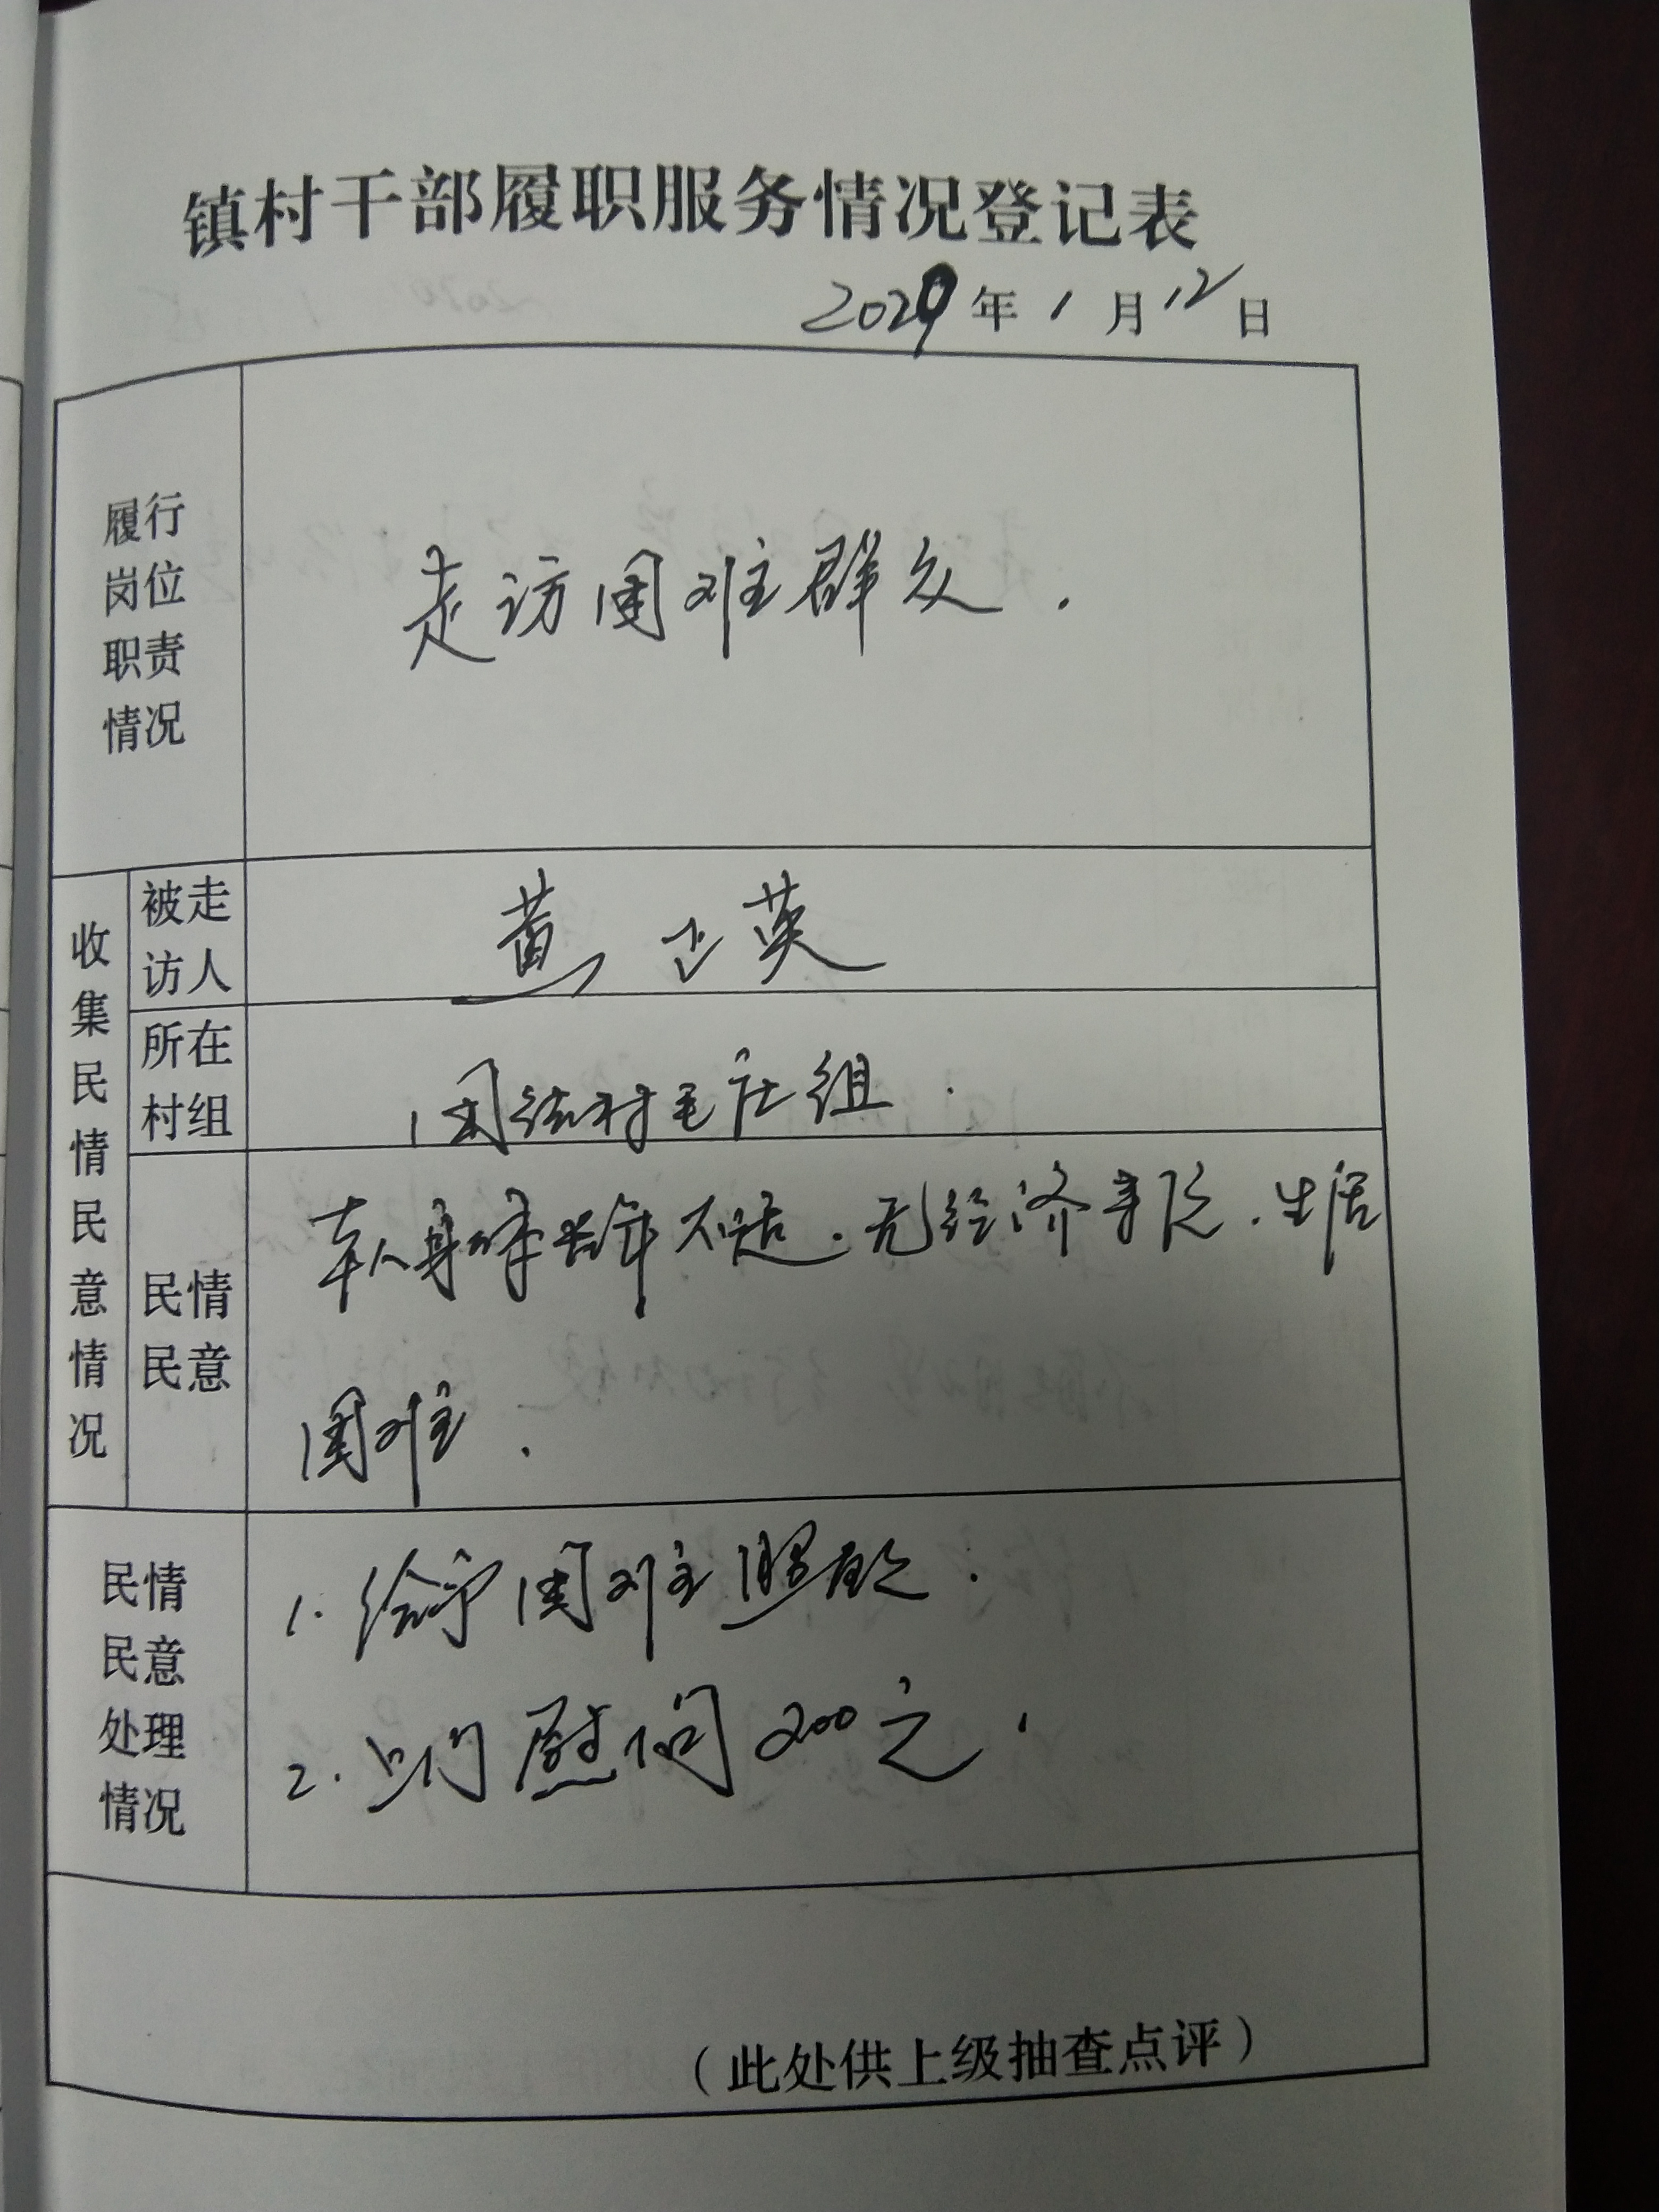 镇村干部履职服务情况登记表
2020年1月12日
履行
岗位
职责
情况
走访困难群众.
收集民情民意情况
被走
访人
黄 英
所在
村组
团结村毛庄组.
民情
民意
本人身体常年不适.无经济来源.生活
困难.
民情
民意
处理
情况
1.给予困难照顾.
2.上门慰问200元.
(此处供上级抽查点评)